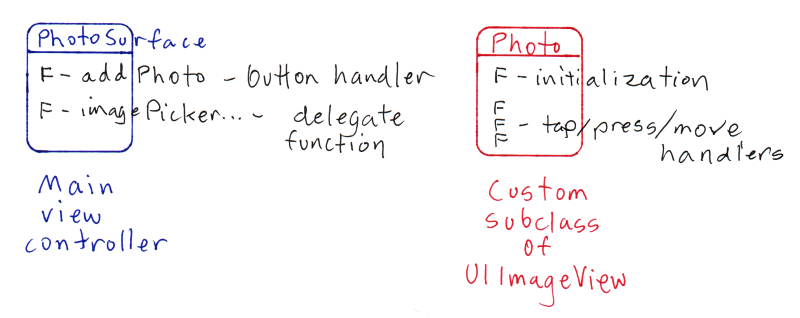 PhotoSurface
F - addPhoto - button handler
F - imagePicker... - delegate
function
Main
view
controller
Photo
F - initialization
F
F - tap/press/move
F
handlers
Custom
subclass
of
UIImageView